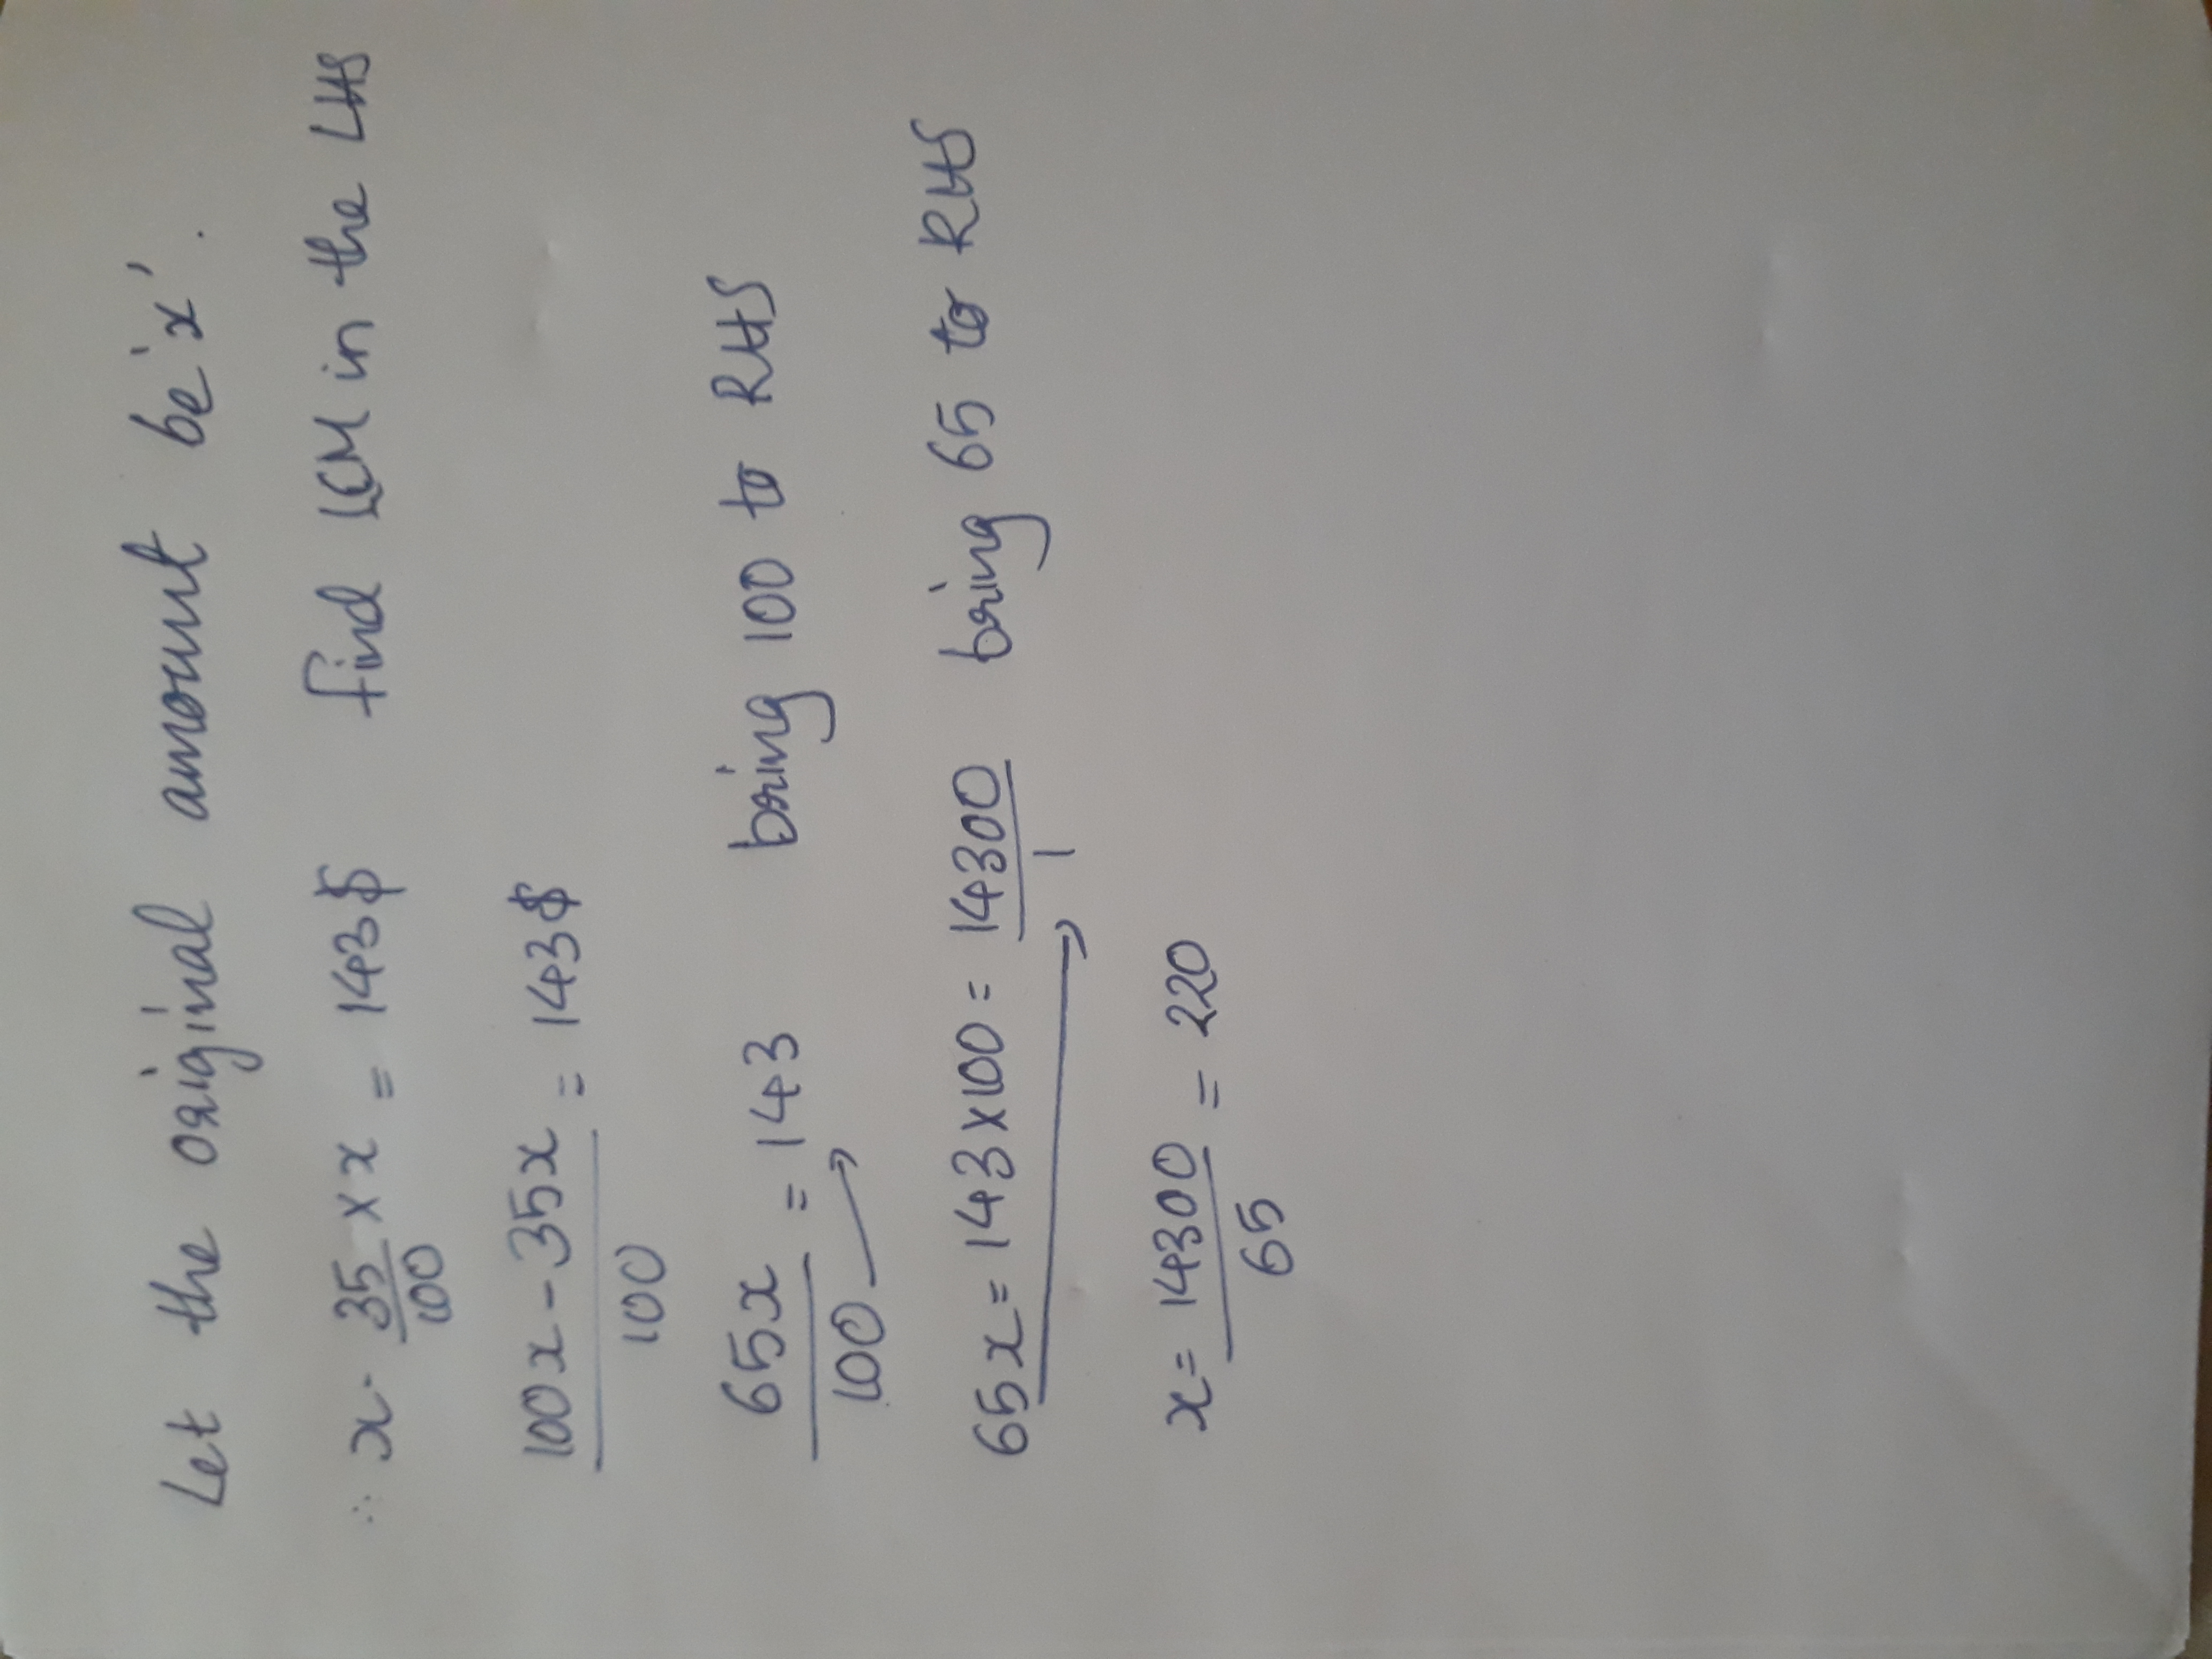 Let the original amount be 'x'.
∴ x - 35/100 × x = 143$ find LCM in the LHS
100x - 35x/100 = 143$
65x/100 = 143 bring 100 to RHS
65x = 143 × 100 = 14300/1 bring 65 to RHS
x = 14300/65 = 220